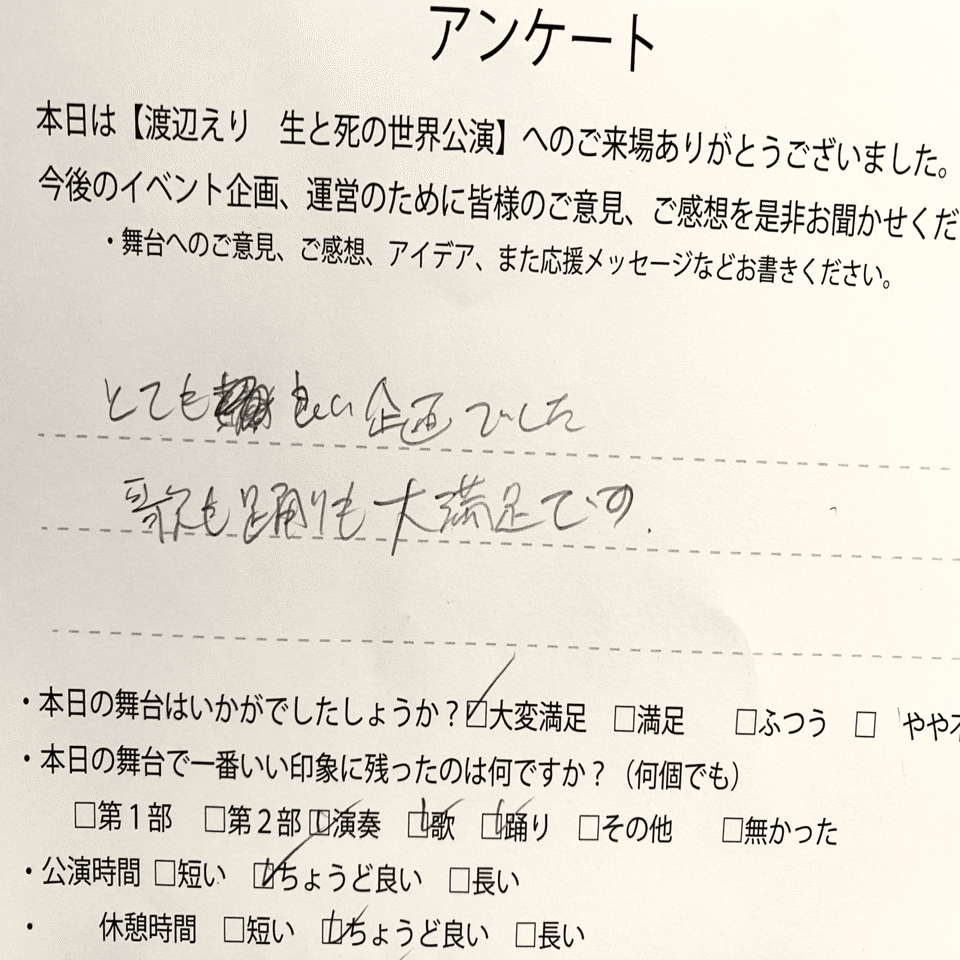 アンケート
本日は【渡辺えり　生と死の世界公演】へのご来場ありがとうございました。
今後のイベント企画、運営のために皆様のご意見、ご感想を是非お聞かせくだ
・舞台へのご意見、ご感想、アイデア、また応援メッセージなどお書きください。
とても 良い企画でした
歌も踊りも大満足です.
・本日の舞台はいかがでしたしょうか？☑大変満足　□満足　□ふつう　□　やや不
・本日の舞台で一番いい印象に残ったのは何ですか？（何個でも）
□第１部　□第２部　☑演奏　☑歌　☑踊り　□その他　□無かった
・公演時間　□短い　☑ちょうど良い　□長い
・　休憩時間　□短い　☑ちょうど良い　□長い